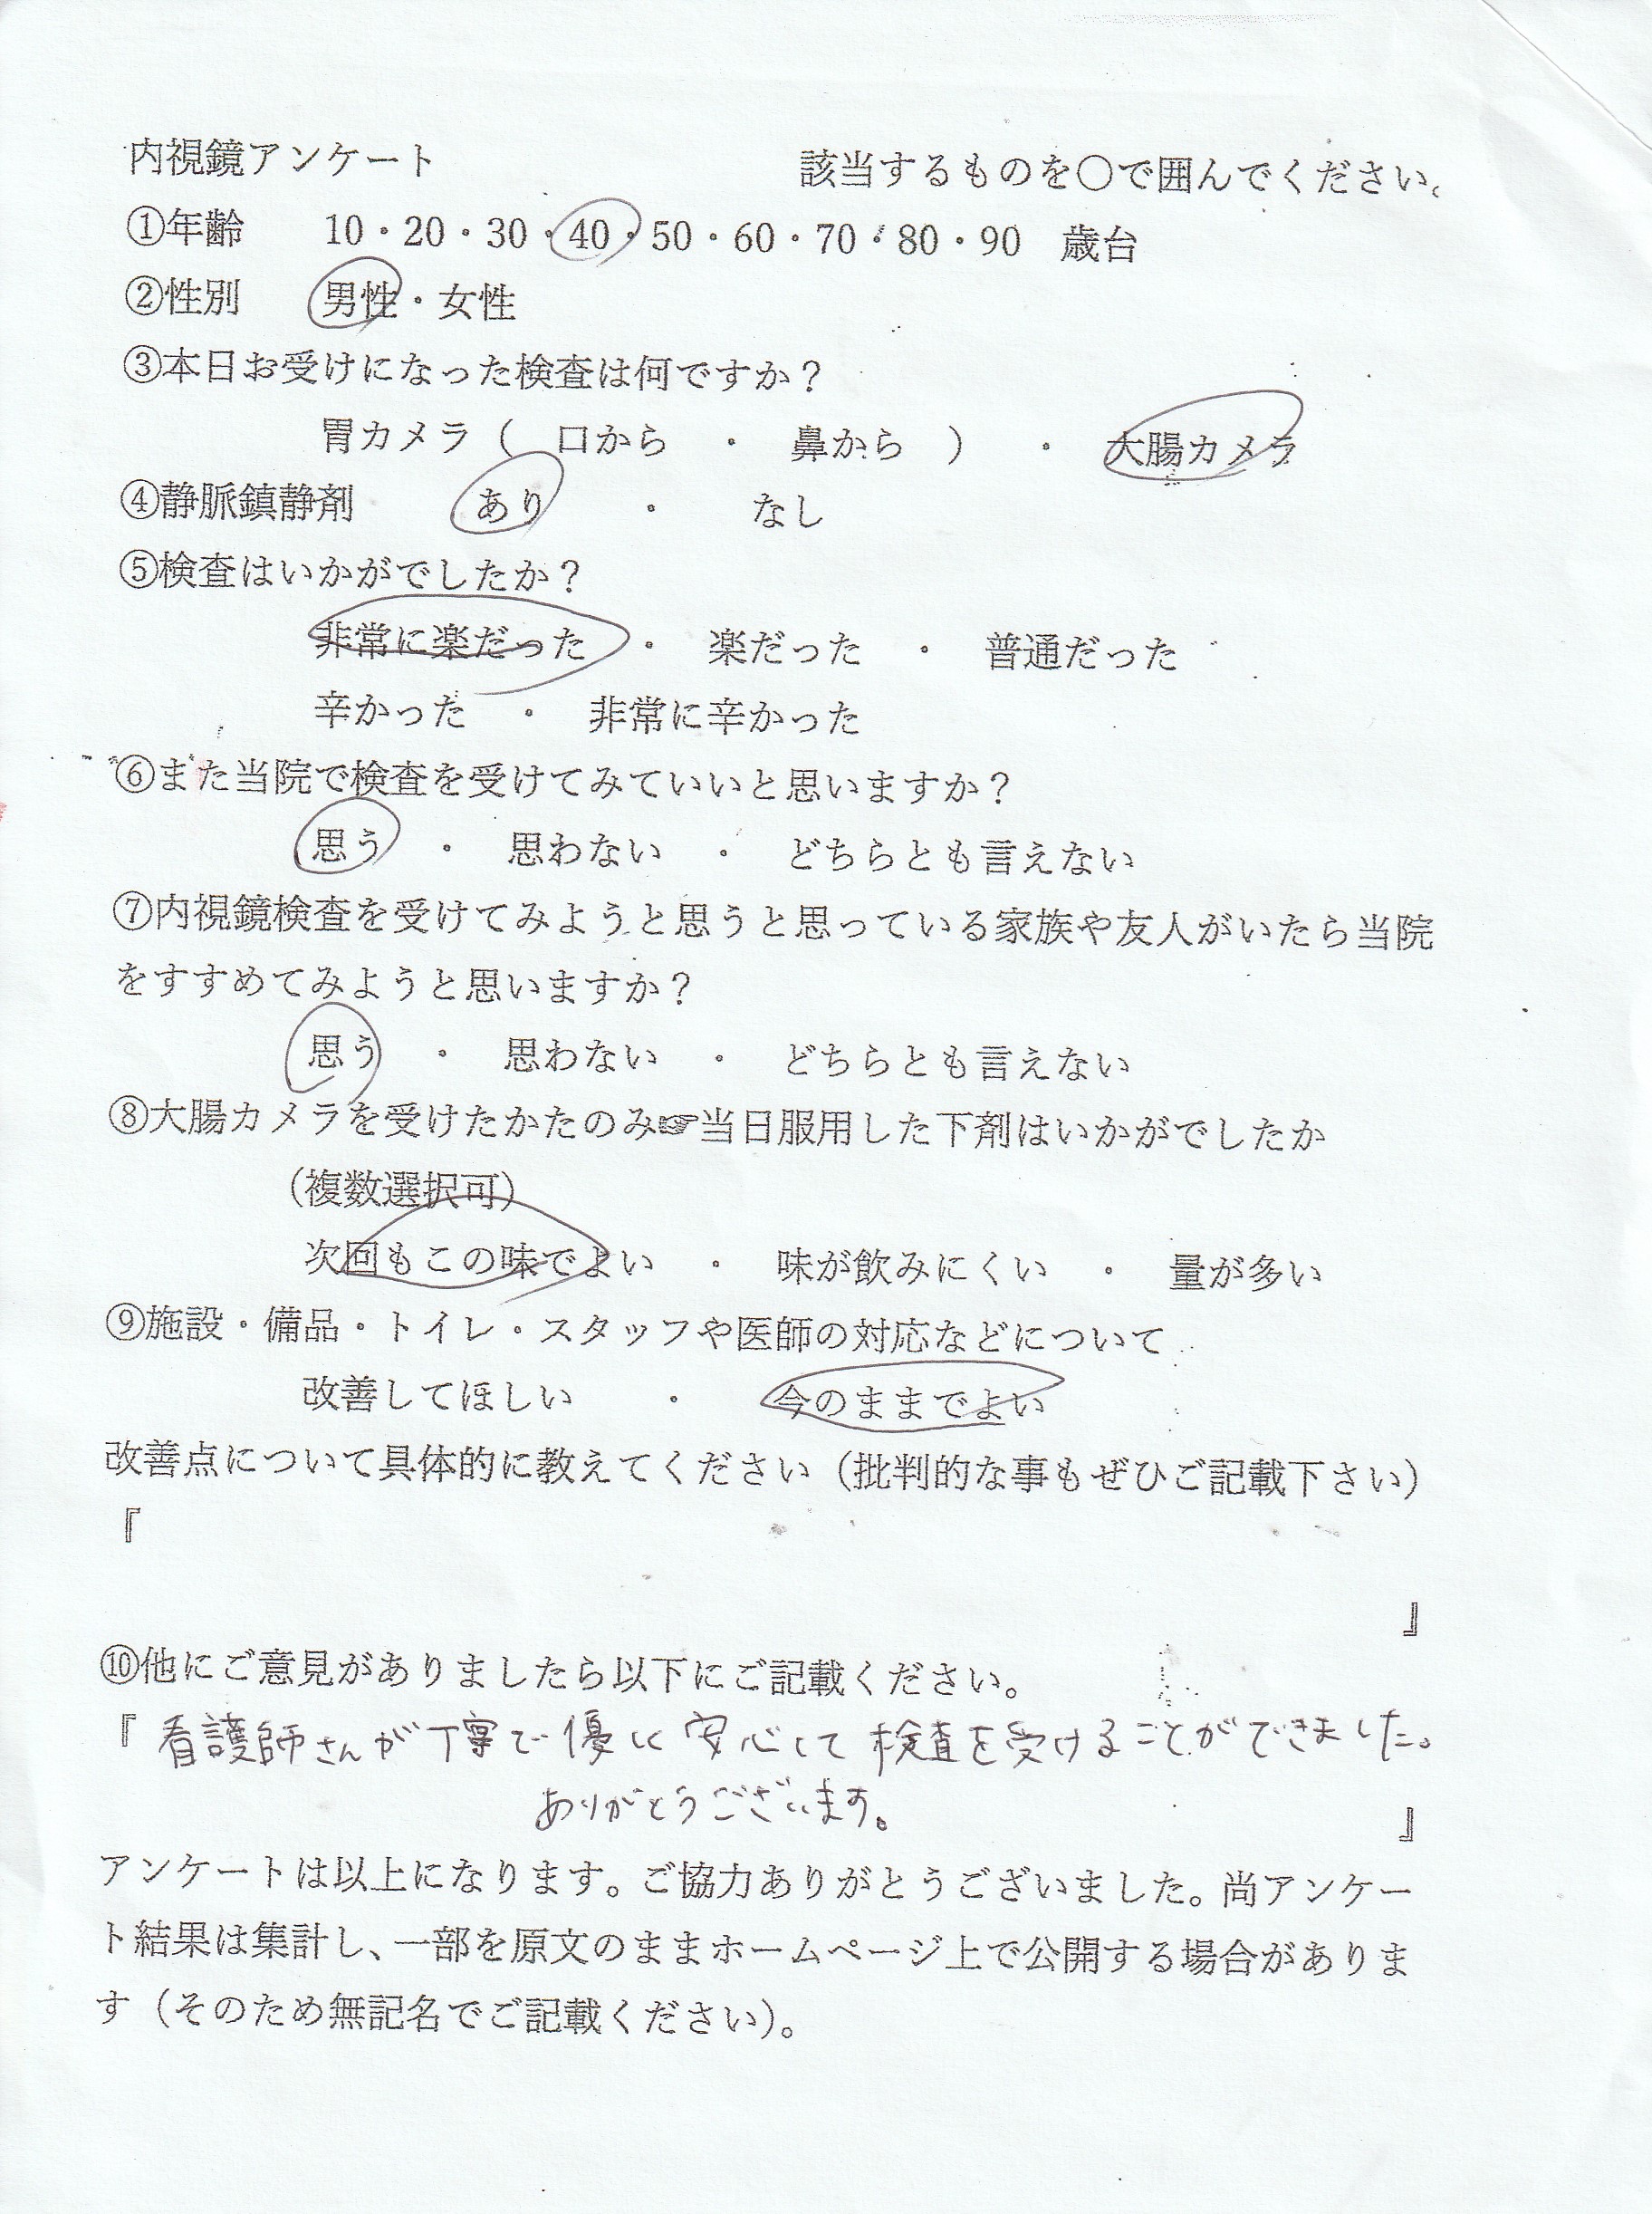 内視鏡アンケート　該当するものを〇で囲んでください。
①年齢　10・20・30・40・50・60・70・80・90　歳台
②性別　男性・女性
③本日お受けになった検査は何ですか？
胃カメラ（　口から　・　鼻から　）　・　大腸カメラ
④静脈鎮静剤　あり　・　なし
⑤検査はいかがでしたか？
非常に楽だった　・　楽だった　・　普通だった
辛かった　・　非常に辛かった
⑥また当院で検査を受けてみていいと思いますか？
思う　・　思わない　・　どちらとも言えない
⑦内視鏡検査を受けてみようと思うと思っている家族や友人がいたら当院
をすすめてみようと思いますか？
思う　・　思わない　・　どちらとも言えない
⑧大腸カメラを受けたかたのみ☞当日服用した下剤はいかがでしたか
（複数選択可）
次回もこの味でよい　・　味が飲みにくい　・　量が多い
⑨施設・備品・トイレ・スタッフや医師の対応などについて
改善してほしい　・　今のままでよい
改善点について具体的に教えてください（批判的な事もぜひご記載下さい）
『
』
⑩他にご意見がありましたら以下にご記載ください。
『看護師さんが丁寧で優しく安心して検査を受けることができました。
ありがとうございます。』
アンケートは以上になります。ご協力ありがとうございました。尚アンケー
ト結果は集計し、一部を原文のままホームページ上で公開する場合がありま
す（そのため無記名でご記載ください）。